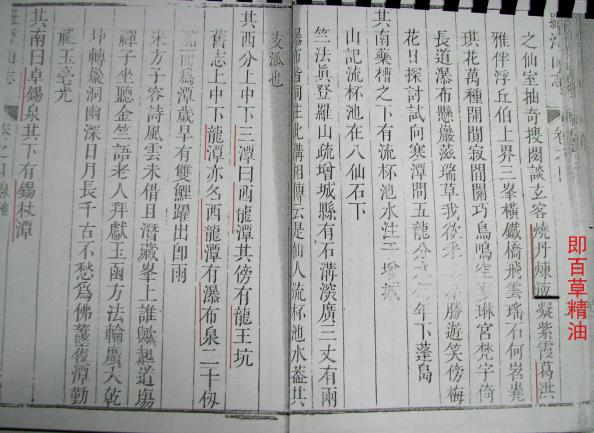 即百草精油
之仙室抽奇搜閟談玄客燒丹煉液凝紫霞葛洪
雅伴浮丘伯上界三峯橫鐵橋飛雲瑤石何岧嶤
琪花萬種開闤寂閒關巧鳥鳴空琳宮梵字倚
長道瀑布懸巖茲瑞草我欲乘勝遊笑傍梅
花日探討試向寒潭問五龍今年下蓬島
其南藥槽之下有流杯池水注于增城
山記流杯池在八仙石下
竺法眞登羅山疏增城縣有石溝溪廣三丈有兩
瀑布皆洞注此溝相傳云是仙人流杯池水蓋其
支派也
其西分上中下三潭曰西龍潭其傍有龍王坑
舊志上中下龍潭亦名西龍潭有瀑布泉二十仞
匯而爲潭歲旱有雙鯉躍出卽雨
宋方子容詩風雲未借且潛藏峯上誰歟起道塲
禪子坐聽金竺語老人拜獻玉函方法輪廣大乾
坤轉巖洞幽深日月長千古不愁爲佛護復潭勤
禮玉毫光
其南曰卓錫泉其下有錫杖潭